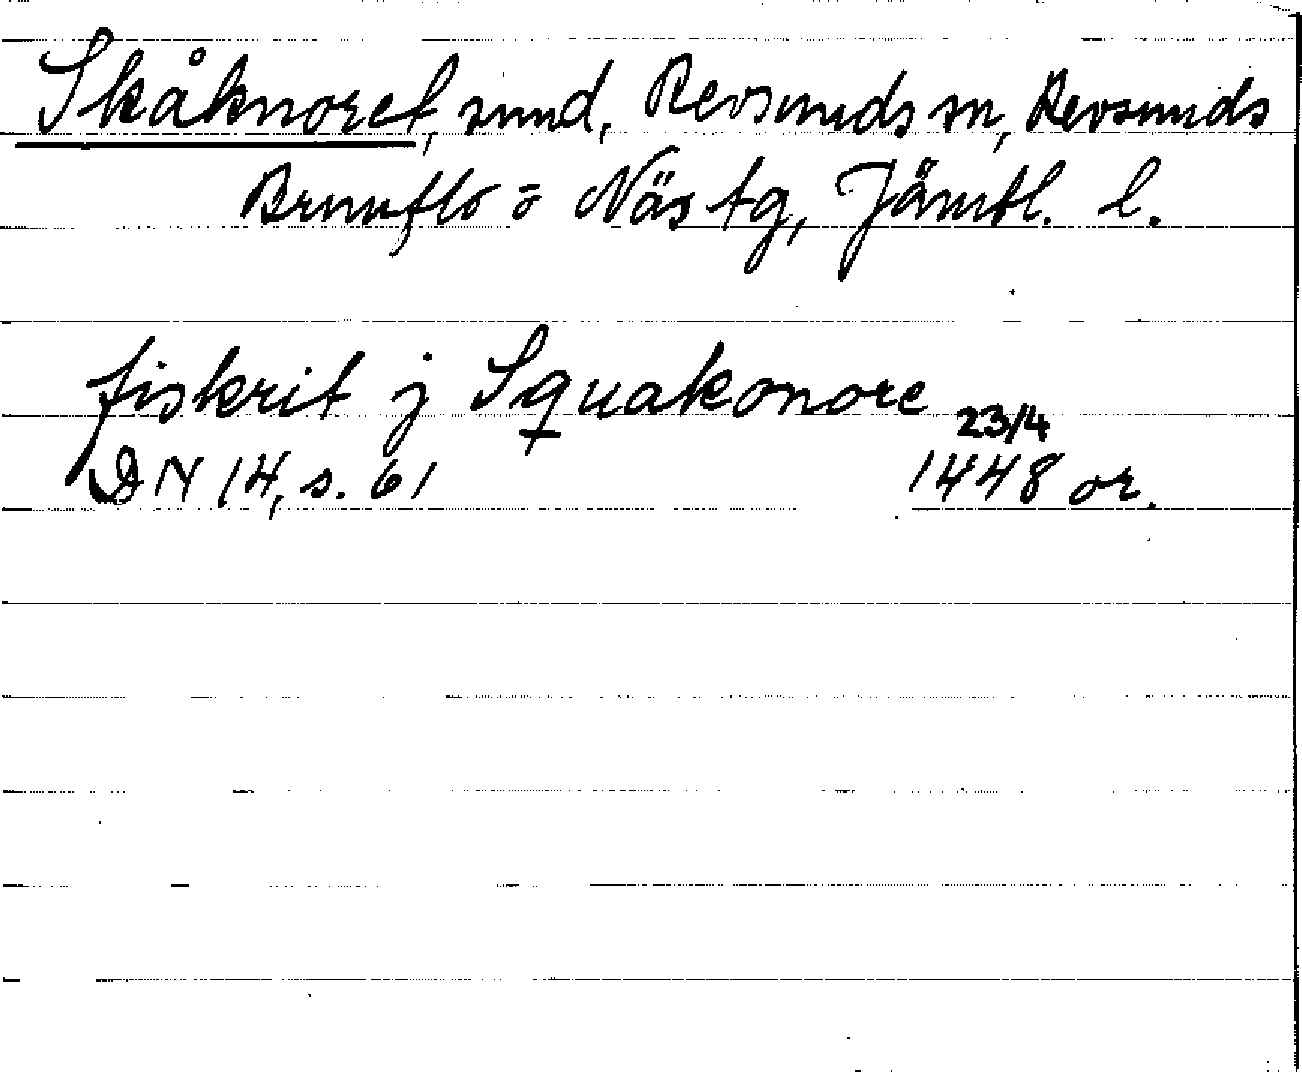 Skåknoret, sund, Revsunds sn, Revsunds
Brunflo o Näs tg, Jämtl. l.
fiskrit j Squakonore
23/4
DN 14, s. 61 1448 or.